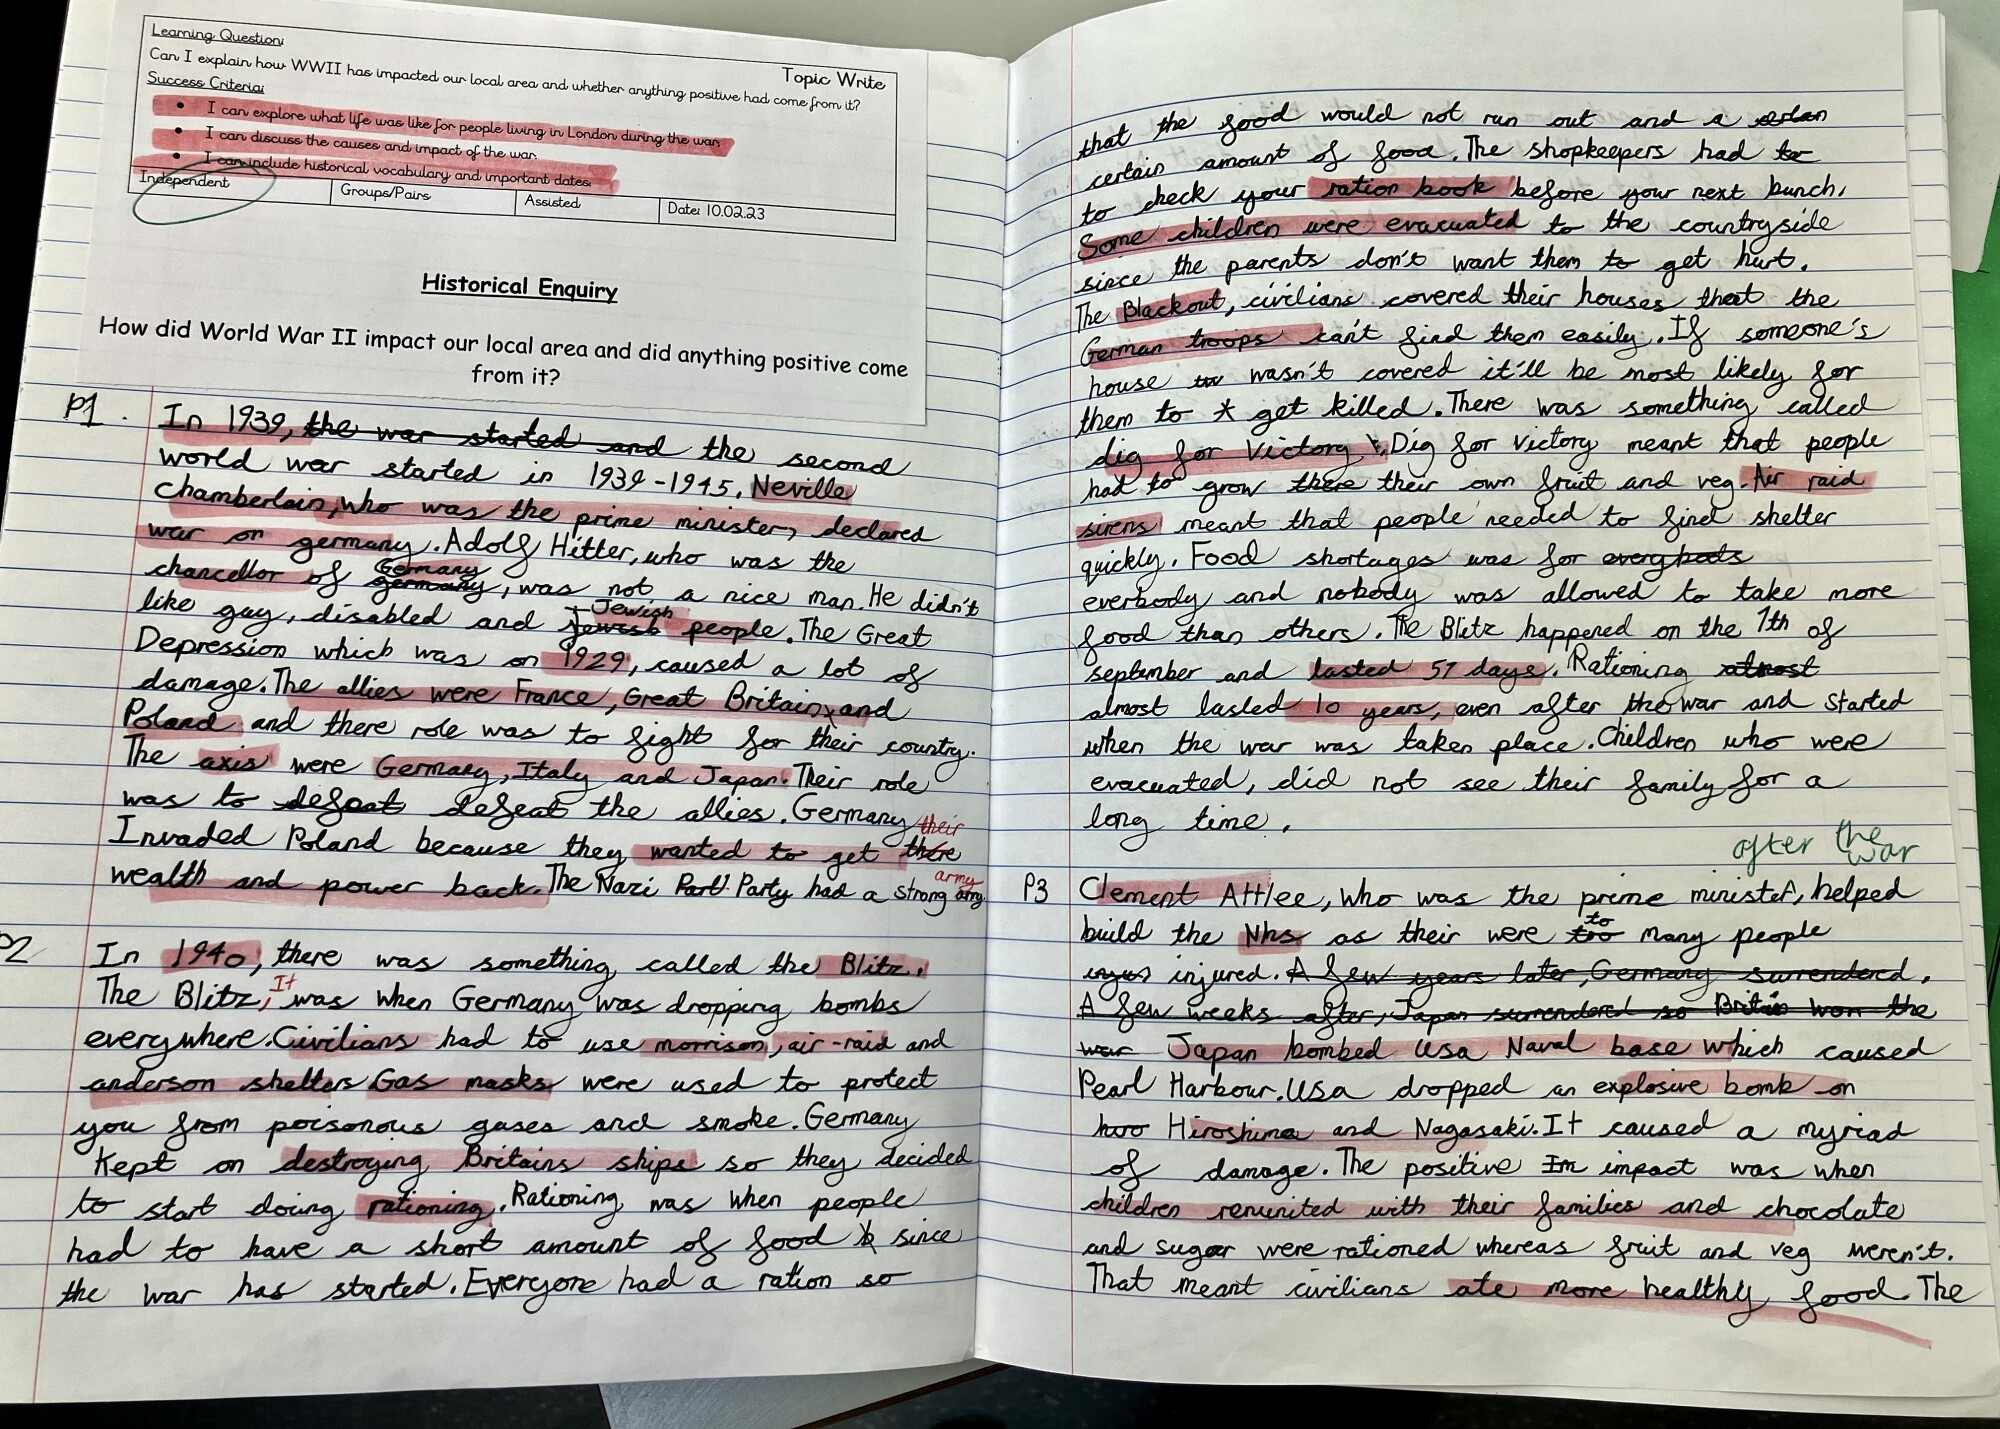 Learning Question:
Topic Write
Can I explain how WWII has impacted our local area and whether anything positive had come from it?
Success Criteria:
• I can explore what life was like for people living in London during the war.
• I can discuss the causes and impact of the war.
• I can include historical vocabulary and important dates.
Independent Groups/Pairs Assisted Date: 10.02.23
Historical Enquiry
How did World War II impact our local area and did anything positive come
from it?
P1. In 1939, the war started and the second
world war started in 1939-1945. Neville
Chamberlain, who was the prime minister, declared
war on germany. Adolf Hitler, who was the
chancellor of germany Germany, was not a nice man. He didn't
like gay, disabled and Jewish people. The Great
Depression which was on 1929, caused a lot of
damage. The allies were France, Great Britain, and
Poland and there role was to fight for their country.
The axis were Germany, Italy and Japan. Their role
was to defeat defeat the allies. Germany
Invaded Poland because they wanted to get there their
wealth and power back. The Nazi Part Party had a strong army army.
P2 In 1940, there was something called the Blitz.
The Blitz, It was when Germany was dropping bombs
everywhere. Civilians had to use morrison, air-raid and
anderson shelters Gas masks were used to protect
you from poisonous gases and smoke. Germany
Kept on destroying Britains ships so they decided
to start doing rationing. Rationing was when people
had to have a short amount of food since
the war has started. Everyone had a ration so
that the food would not run out and a
certain amount of food. The shopkeepers had to
to check your ration book before your next bunch.
Some children were evacuated to the countryside
since the parents don't want them to get hurt.
The Blackout, civilians covered their houses that the
German troops can't find them easily. If someone's
house wasn't covered it'll be most likely for
them to * get killed. There was something called
dig for Victory. Dig for victory meant that people
had to grow there their own fruit and veg. Air raid
sirens meant that people needed to find shelter
quickly. Food shortages was for
everbody and nobody was allowed to take more
food than others. The Blitz happened on the 7th of
september and lasted 57 days. Rationing almost
almost lasted 10 years, even after the war and started
when the war was taken place. Children who were
evacuated, did not see their family for a
long time.
after the
war
P3 Clement Attlee, who was the prime minister, helped
build the Nhs as their were too to many people
injured. A few years later, Germany surrendered.
A few weeks after, Japan surrendered so Britain won the
war Japan bombed Usa Naval base which caused
Pearl Harbour. Usa dropped an explosive bomb on
Hiroshima and Nagasaki. It caused a myriad
of damage. The positive Im impact was when
children reruinited with their families and chocolate
and sugar were rationed whereas fruit and veg weren't.
That meant civilians ate more healthly food. The